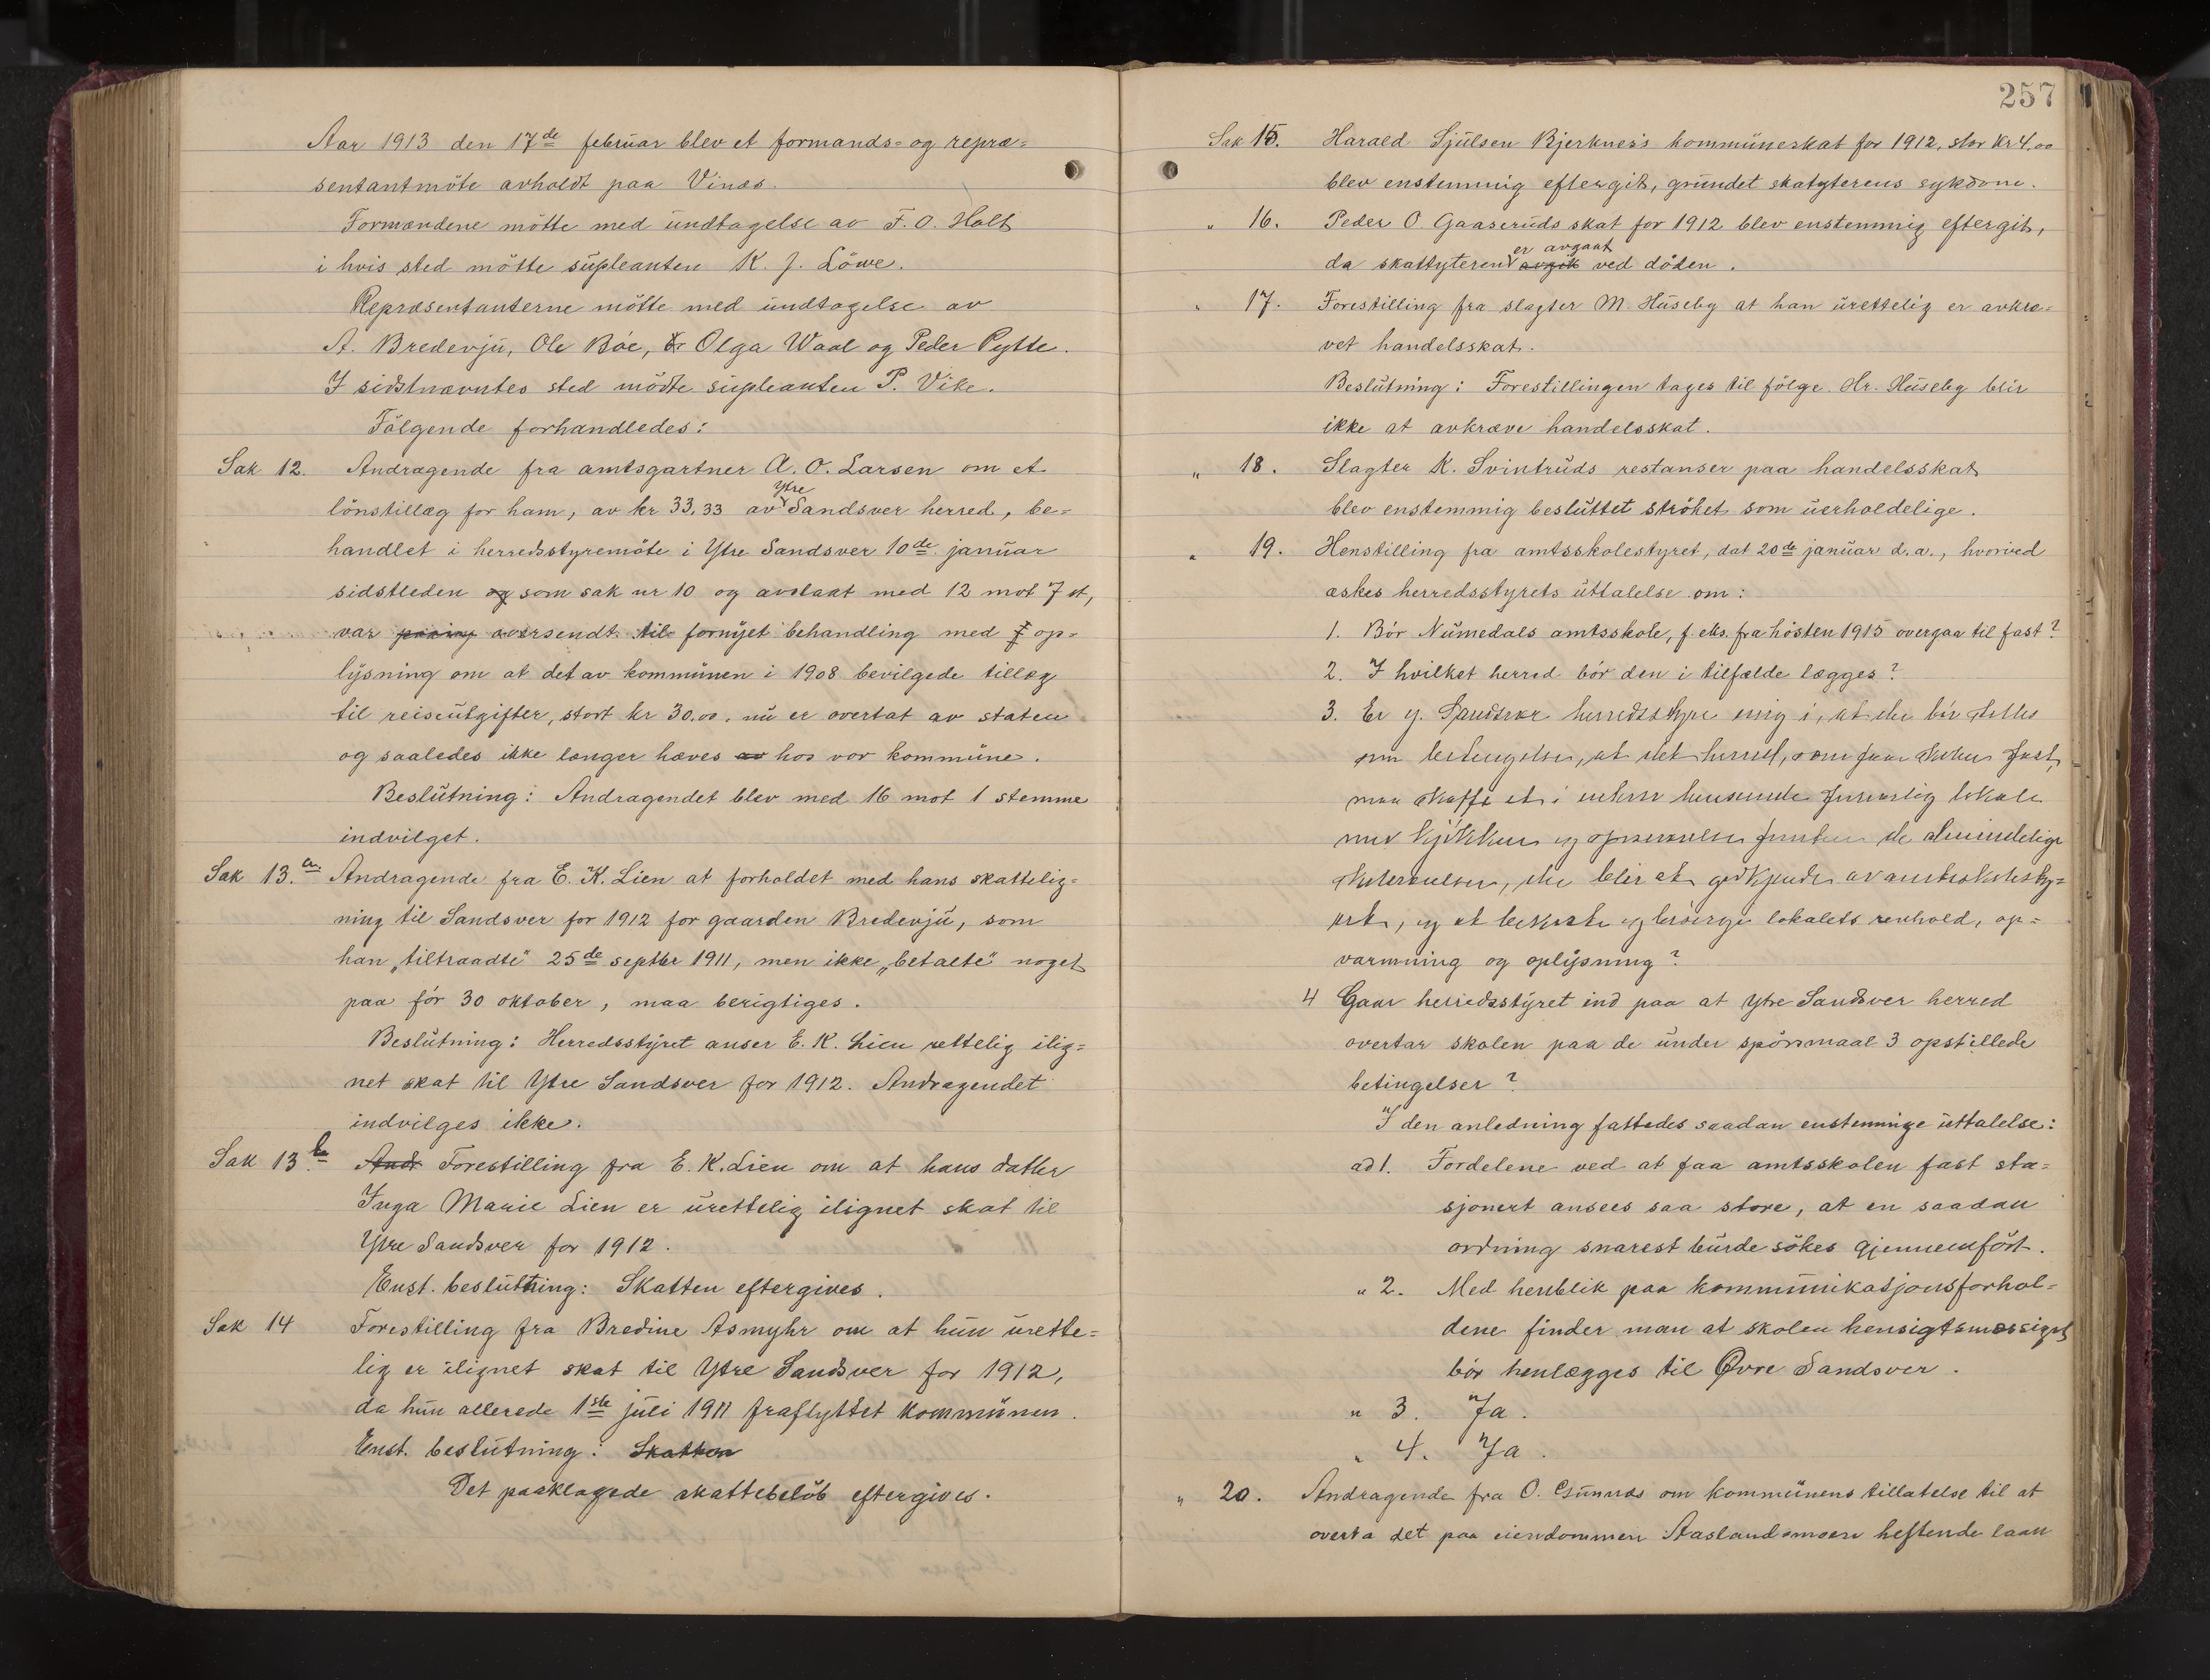 Aar 1913 den 17de februar blev et formands- og repræ=
sentantmöte avholdt paa Vinæs.
Formændene mötte med undtagelse av F. O. Holt
i hvis sted mötte supleanten K. J. Löwe.
Repræsentanterne mötte med undtagelse av
A. Bredevju, Ole Böe, Olga Waal og Peder Pytte.
I sidstnævntes sted mödte supleanten P. Vike.
Fölgende forhandledes:
Sak 12. Andragende fra amtsgartner A. O. Larsen om et
lönstillæg for ham, av kr 33,33 av Ytre Sandsver herred, be=
handlet i herredsstyremöte i Ytre Sandsver 10de januar
sidstleden og som sak nr 10 og avslaat med 12 mot 7 st,
var oversendt til fornyet behandling med op=
lysning om at det av kommunen i 1908 bevilgede tillæg
til reiseutgifter, stort kr 30.00, nu er overtat av staten
og saaledes ikke længer hæves av hos vor kommune.
Beslutning: Andragendet blev med 16 mot 1 stemme
indvilget.
Sak 13.a Andragende fra E. K. Lien at forholdet med hans skattelig=
ning til Sandsver for 1912 for gaarden Bredevju, som
han „tiltraadte" 25de septbr 1911, men ikke „betalte" noget
paa för 30 oktober, maa berigtiges.
Beslutning: Herredsstyret anser E. K. Lien rettelig ilig=
net skat til Ytre Sandsver for 1912. Andragendet
indvilges ikke.
Sak 13.b Andr Forestilling fra E. K. Lien om at hans datter
Inga Marie Lien er urettelig ilignet skat til
Ytre Sandsver for 1912.
Enst. beslutning: Skatten eftergives.
Sak 14 Forestilling fra Bredine Asmyhr om at hun urette=
lig er ilignet skat til Ytre Sandsver for 1912,
da hun allerede 1ste juli 1911 fraflyttet kommunen.
Enst. beslutning: Skatten
Det paaklagede skattebelöb eftergives.
257
Sak 15. Harald Sjulsen Bjerknes's kommuneskat for 1912, stor kr 4.00
blev enstemmig eftergit, grundet skatyterens sykdom.
" 16. Peder O. Gaaseruds skat for 1912 blev enstemmig eftergit,
da skattyteren er avgaat avgik ved döden.
" 17. Forestilling fra slagter M. Huseby at han urettelig er avkræ=
vet handelsskat.
Beslutning: Forestillingen tages til fölge. Hr. Huseby blir
ikke at avkræve handelsskat.
" 18. Slagter K. Svintruds restanser paa handelsskat
blev enstemmig besluttet ströket som uerholdelige.
" 19. Henstilling fra amtsskolestyret, dat 20de januar d.a., hvorved
æskes herredsstyrets uttalelse om:
1. Bör Numedals amtsskole, f. eks. fra hösten 1915 overgaa til fast?
2. I hvilket herred bör den i tilfælde lægges?
3. Er y. Sandsver herredsstyre enig i, at der bör stilles
som betingelse, at det herred, som faar skolen fast,
maa skaffe et i enhver henseende forsvarlig lokale
med kjökken og opvarmelse foruten de almindelige
skoleværelser, der blir at godkjende av amtsskolesty=
ret, og at bekoste og besörge lokalets renhold, op=
varmning og oplysning?
4 Gaar herredsstyret ind paa at Ytre Sandsver herred
overtar skolen paa de under spörsmaal 3 opstillede
betingelser?
I den anledning fattedes saadan enstemmige uttalelse:
ad 1. Fordelene ved at faa amtsskolen fast sta=
sjonert ansees saa store, at en saadan
ordning snarest burde sökes gjennemfört.
" 2. Med henblik paa kommunikasjonsforhol=
dene finder man at skolen hensigtsmæssigst
bör henlægges til Øvre Sandsver.
" 3. Ja.
" 4. Ja.
" 20. Andragende fra O. Gunnæs om kommunens tillatelse til at
overta det paa eiendommen Aaslandsmoen heftende laan